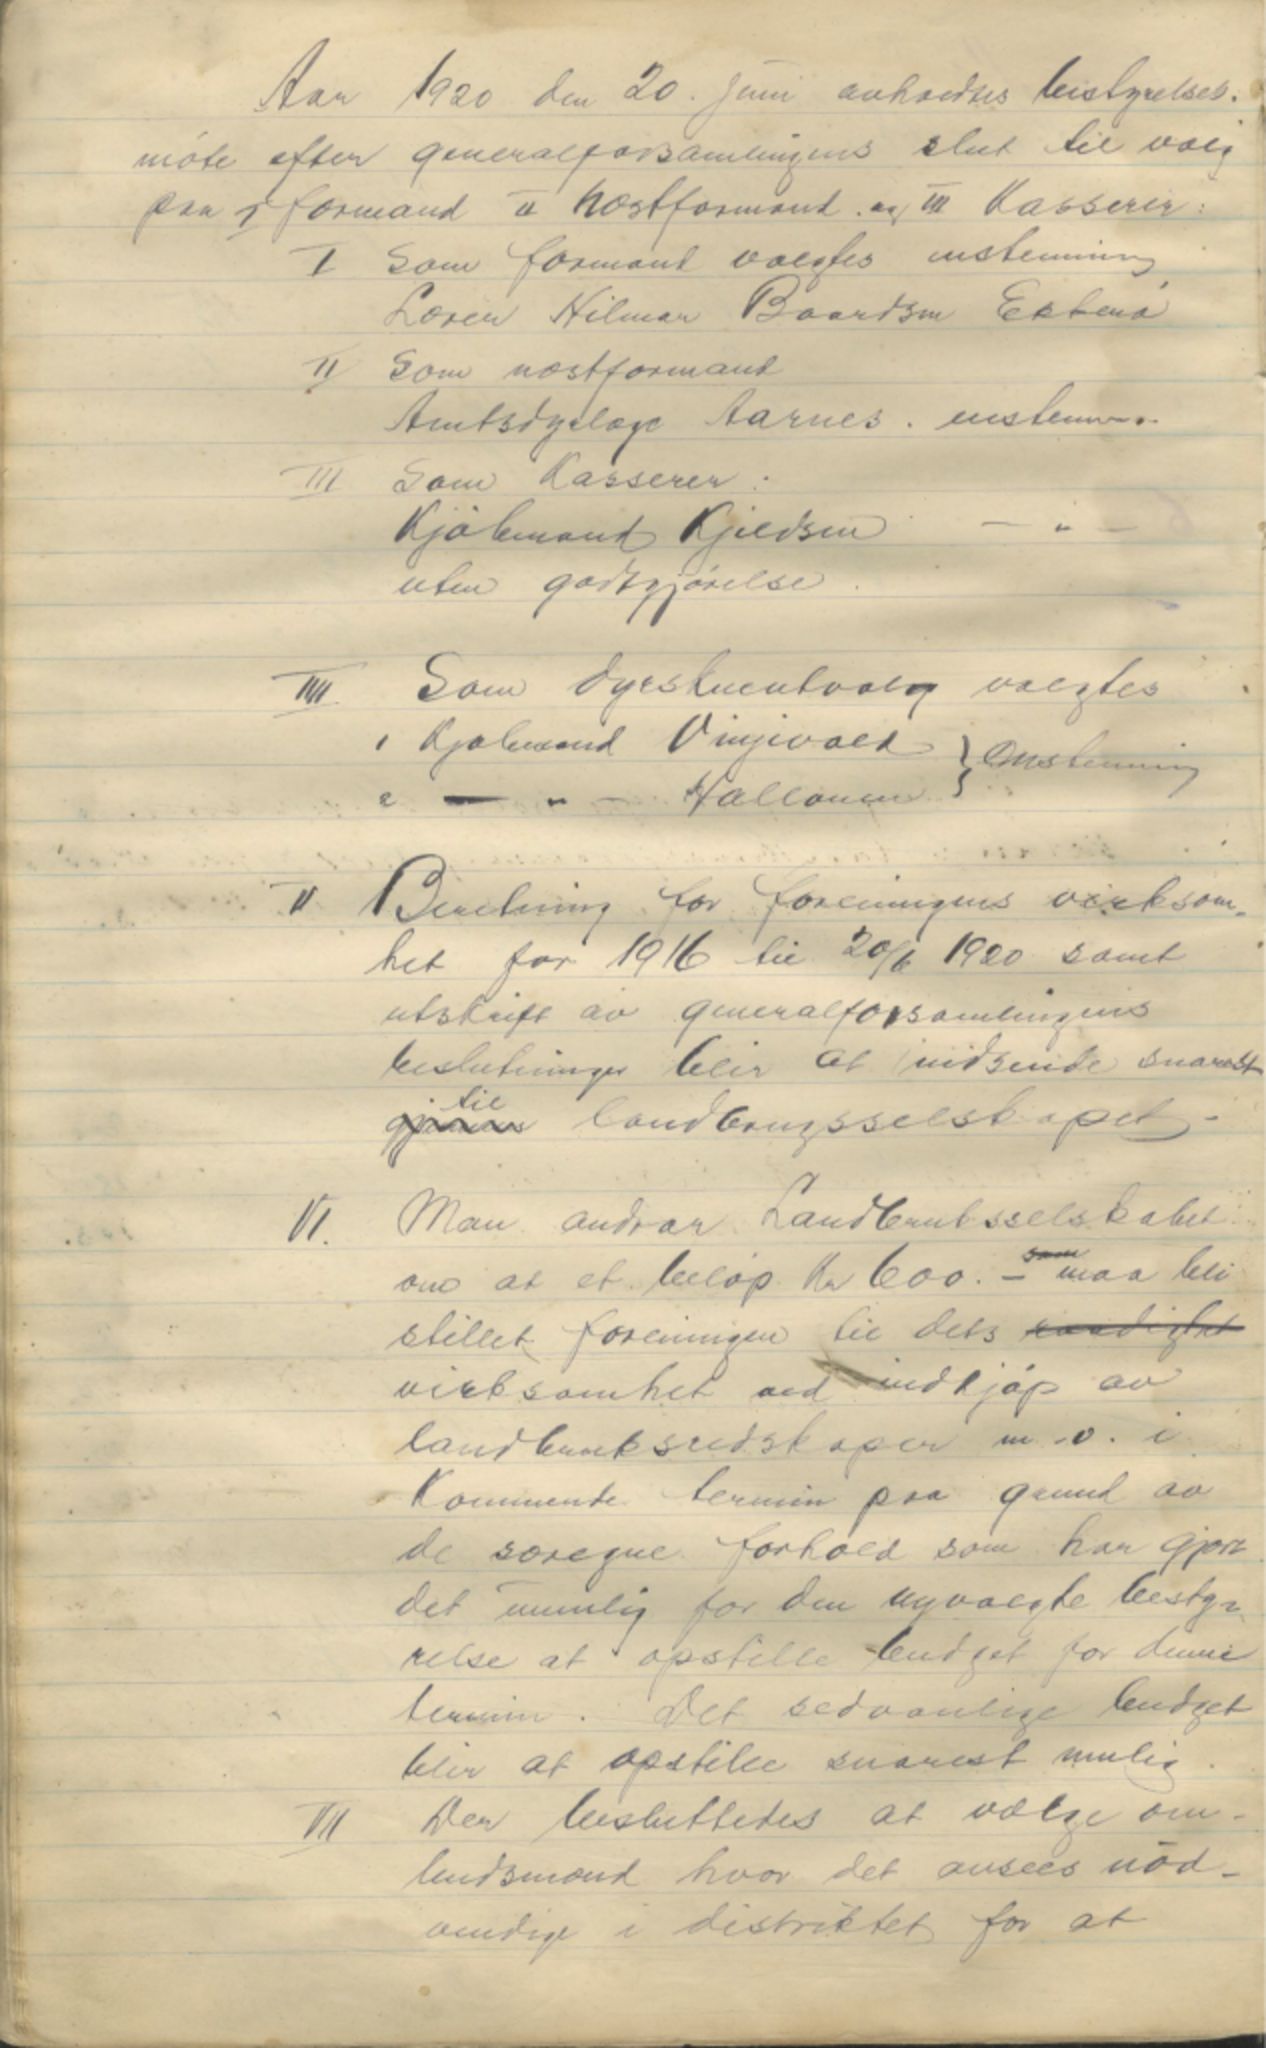 Aar 1920 den 20. juni avholdtes bestyrelses-
möte efter generalforsamlingens slut til valg
paa I formand II næstformand og III Kasserer:
I Som formand valgtes enstemmig
Lærer Hilmar Baardsen
II Som næstformand
Amtsdyrlæge Aarnes. enstemm..
III Som Kasserer:
Kjöbmand Kjeldsen — " —
uten godtgjörelse.
IIII Som dyrskuentvalg valgtes
1 Kjöbmand Vinjevold } Enstemmig
2 — " — Hallonen
V Beretning for foreningens virksom-
het for 1916 til 20/6 1920 samt
utskrift av generalforsamlingens
beslutninger blir at indsende snarest
til landbrugsselskapet.
VI. Man andrar Landbruksselskabet
om at et belöp Kr 600.- som maa bli
stillet foreningen til dets raadighet
virksomhet ved indkjöp av
landbruksredskaper m.v. i
Kommende termin paa grund av
de særegne forhold som har gjort
det umulig for den nyvalgte besty-
relse at opstille budget for denne
termin. Det sedvanlige budget
blir at opstille snarest mulig.
VII Der besluttedes at vælge om-
budsmænd hvor det ansees nöd-
vendige i distriktet for at